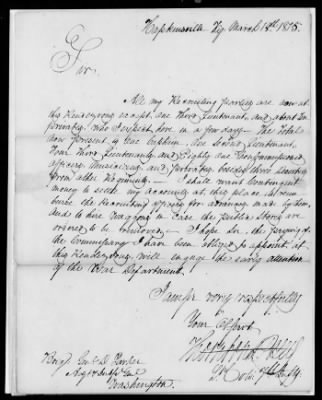 Hopkinsville Ky March 18th 1815.
Sir
All my Recruiting parties are now at
this Rendezvous except one third Lieutenant, and about
privates, who I expect here in a few days. The total
now present is One Captain, One Second Lieutenant,
Four third Lieutenants and Eighty one Non commissioned
officers, Musicians, and Privates, besides three
from other Regiments. I shall want Contingent
money to settle my accounts at this place, reim-
burse the Recruiting officers for advances made by them,
and to hire Waggons in Case the public Stores are
ordered to be removed. I hope the
the Commissary I have been obliged to appoint at
this Rendezvous, will engage the early attention
of the War Department.
I am Sir very respectfully
Your Obt Servt
7th Infy
Brigr Genl D. Parker
Adjt & Insptr Genl
Washington